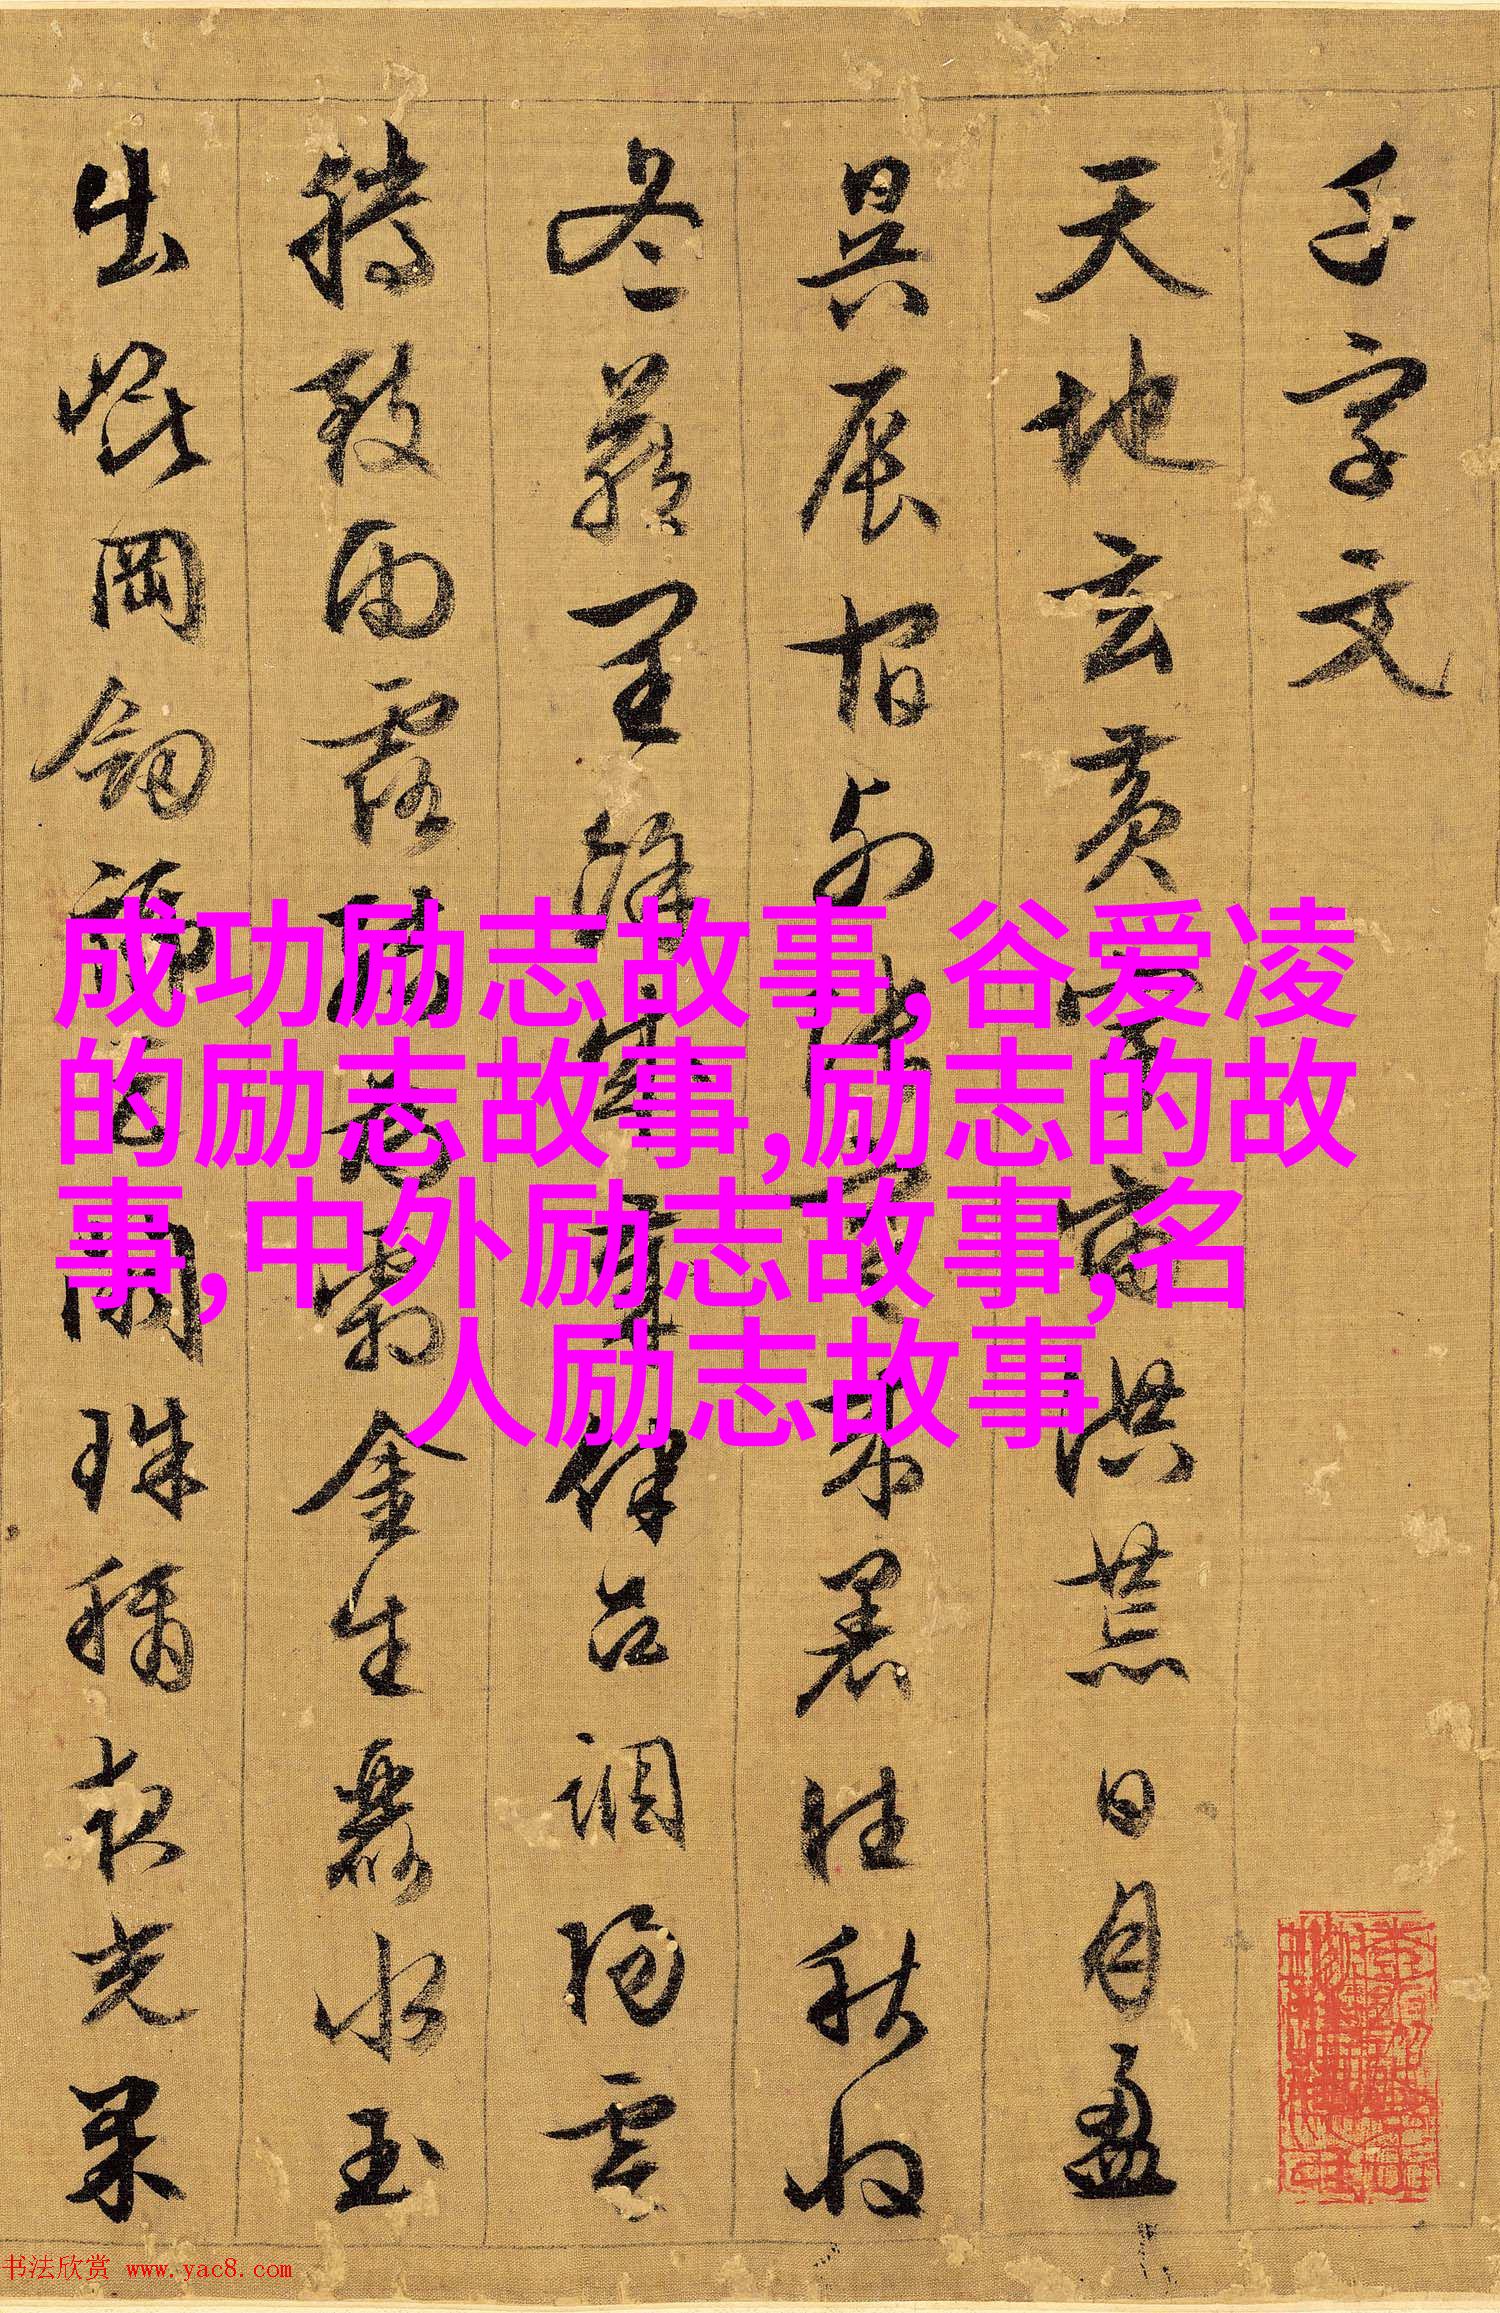 千字文
天地玄黃宇宙洪荒日月盈
昃辰宿列張寒來暑往秋收
冬藏閏餘成歲律呂調陽雲
騰致雨露結為霜金生麗水玉
出崑岡劒號巨闕珠稱夜光果
成功励志故事,谷爱凌
的励志故事,励志的故
事,中外励志故事,名
人励志故事
书法欣赏 www.yac8.com